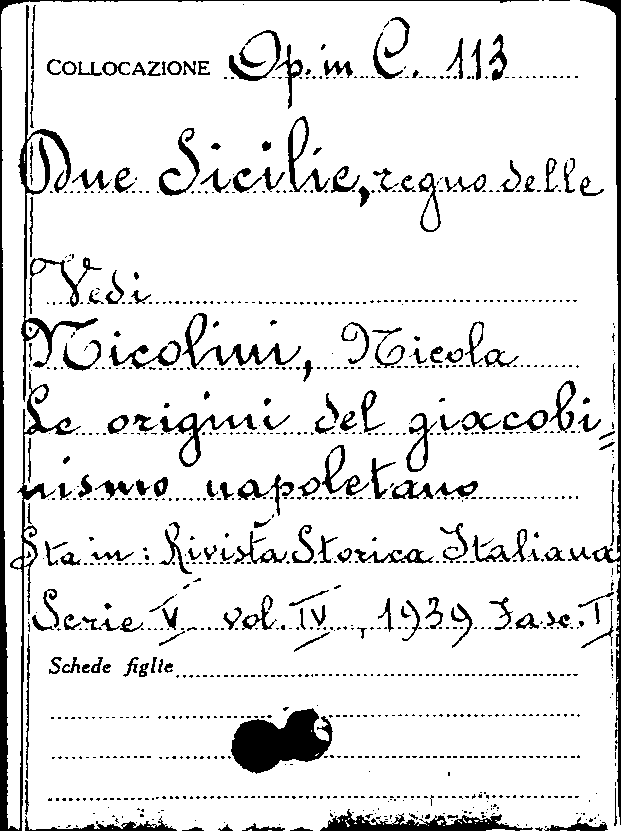 COLLOCAZIONE Op. in C. 113
Due Sicilie, regno delle
Vedi
Nicolini, Nicola
Le origini del giacobi=
nismo napoletano
Sta in: Rivista Storica Italiana
Serie V vol. IV, 1939 Fasc. I
Schede figlie